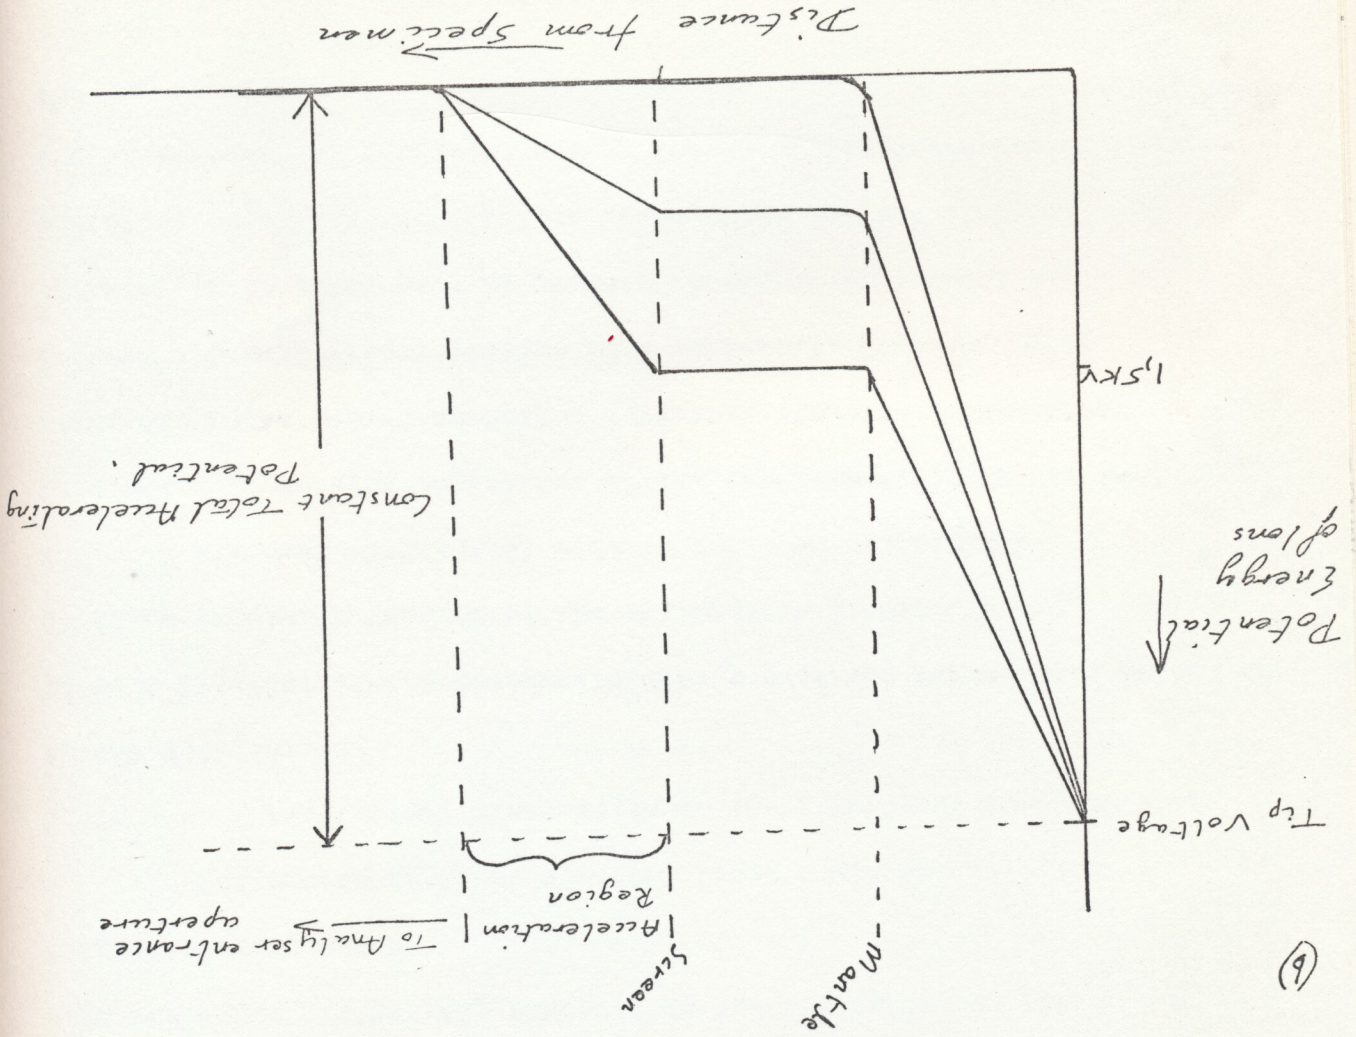 (b)
Mantle
Screen
Acceleration
Region
To Analyser entrance
aperture
Tip Voltage
Potential
Energy
of Ions
Constant Total Accelerating
Potential.
1,5KV
Distance from Specimen